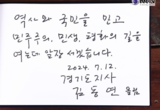 역사와 국민을 믿고
민주주의, 민생, 평화의 길을
여는데 앞장 서겠습니다.
2024. 7. 12.
경기도지사
김동연